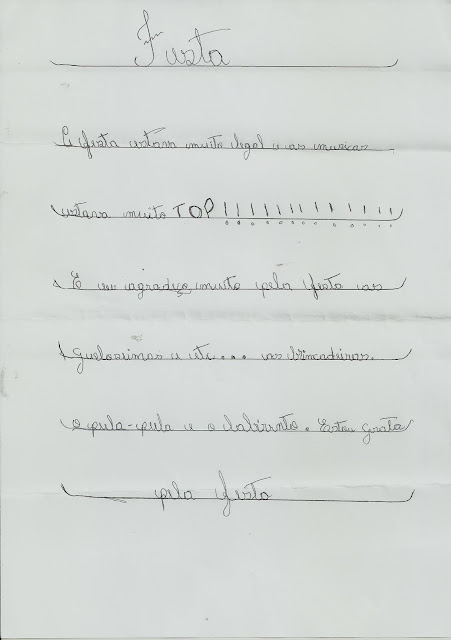 Festa
A festa estava muito legal e as musicas
estava muito TOP!!!!!!!!!!!!!!
E eu agradeço muito pela festa as
gulosimas e etc... as brincadeiras.
o pula-pula e o labirinto. Estou grata
pela festa